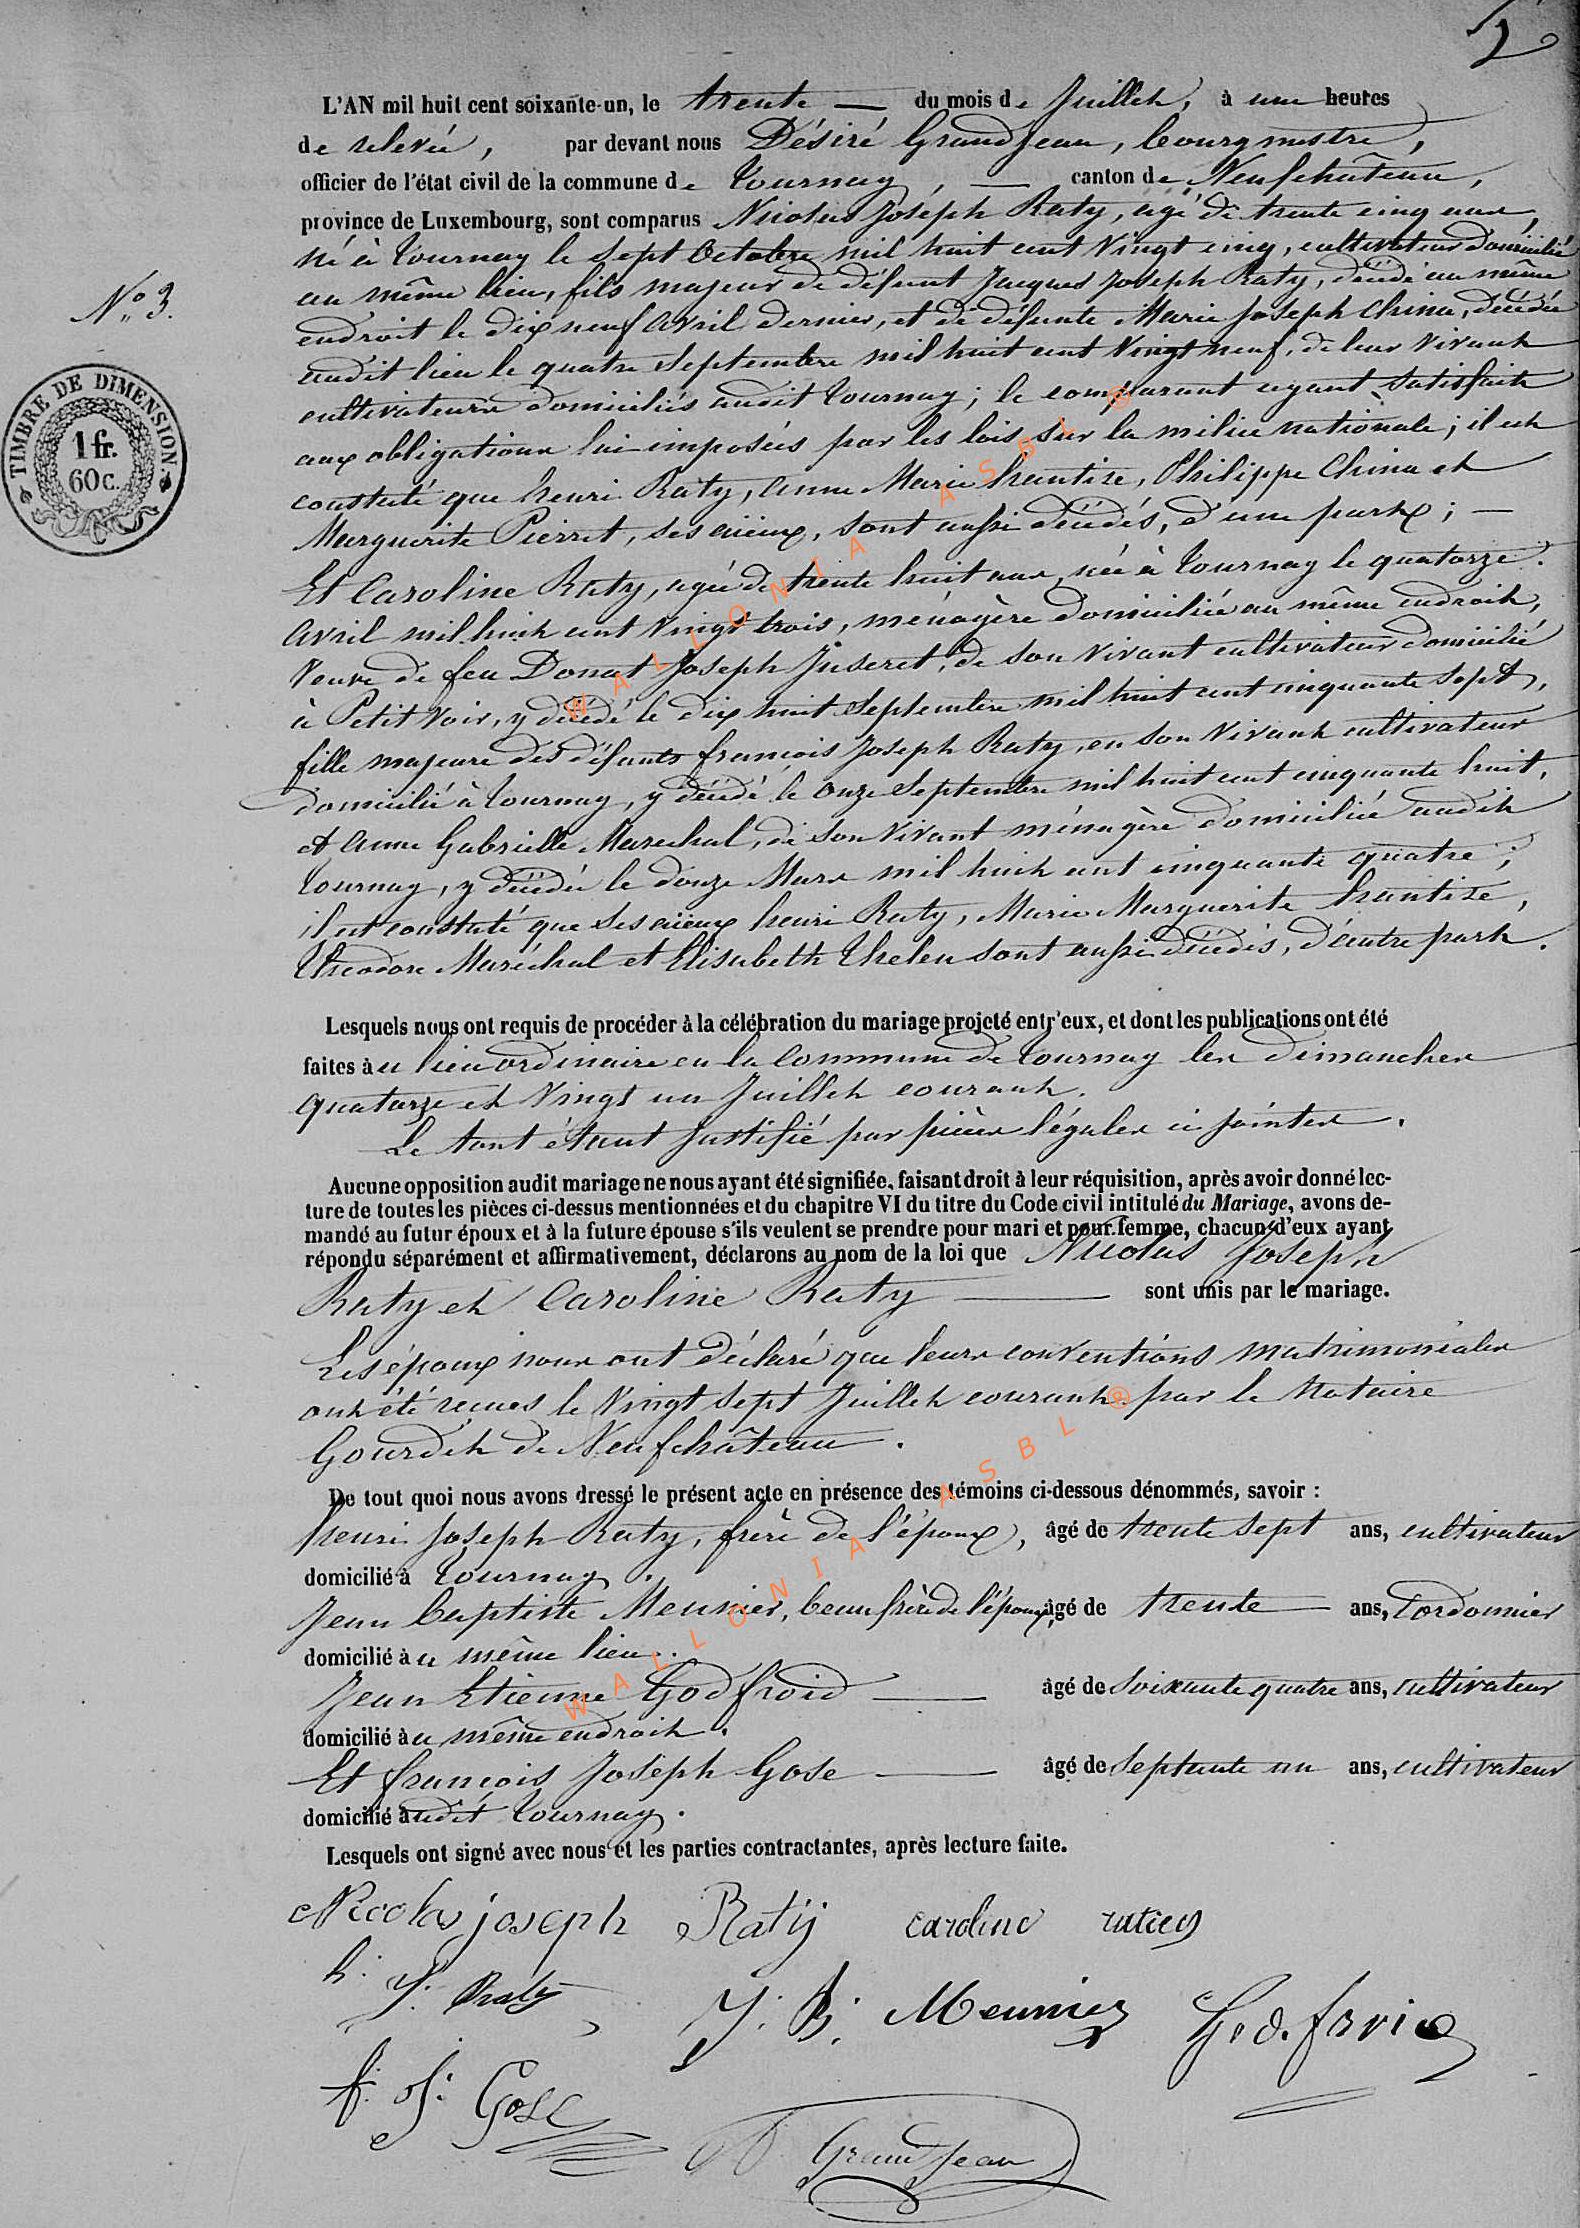 2
L'AN mil huit cent soixante-un, le trente — du mois de Juillet, à une heures
de relevée, par devant nous Désiré Grandjean, bourgmestre,
officier de l'état civil de la commune de Tournay, — canton de Neufchâteau,
province de Luxembourg, sont comparus Nicolas Joseph Raty, agé de trente cinq ans,
né à Tournay le sept Octobre mil huit cent vingt cinq, cultivateur domicilié
au même lieu, fils majeur de défunt Jacques Joseph Raty, décédé au même
endroit le dix neuf avril dernier, et de défunte Marie Joseph China, décédée
audit lieu le quatre septembre mil huit cent vingt neuf, de leur vivant
cultivateurs domiciliés audit Tournay; le comparant ayant satisfait
aux obligations lui imposées par les lois sur la milice nationale; il est
constaté que henri Raty, anne Marie hantize, Philippe China et
Marguerite Pierret, ses aïeux, sont aussi décédés, d'une part; —
Et Caroline Raty, agée de trente huit ans, née à Tournay le quatorze
avril mil huit cent vingt trois, ménagère domiciliée au même endroit,
veuve de feu Donat Joseph Juseret, de son vivant cultivateur domicilié
à Petitvoir, y décédé le dix huit septembre mil huit cent cinquante sept,
fille majeure des défunts françois Joseph Raty, en son vivant cultivateur
domicilié à Tournay, y décédé le onze septembre mil huit cent cinquante huit,
et anne Gabrielle Marechal, de son vivant ménagère domiciliée audit
Tournay, y décédée le douze Mars mil huit cent cinquante quatre;
il est constaté que ses aïeux henri Raty, Marie Marguerite hantize,
Theodore Maréchal et Elisabeth Thelen sont aussi décédés, d'autre part.
N° 3.
TIMBRE DE DIMENSION.
1 fr.
60 c.
Lesquels nous ont requis de procéder à la célébration du mariage projeté entr'eux, et dont les publications ont été
faites au lieu ordinaire en la commune de Tournay les dimanches
quatorze et vingt un Juillet courant.
Le tout étant justifié par pièces légales ci jointes.
Aucune opposition audit mariage ne nous ayant été signifiée, faisant droit à leur réquisition, après avoir donné lec-
ture de toutes les pièces ci-dessus mentionnées et du chapitre VI du titre du Code civil intitulé du Mariage, avons de-
mandé au futur époux et à la future épouse s'ils veulent se prendre pour mari et pour femme, chacun d'eux ayant
répondu séparément et affirmativement, déclarons au nom de la loi que Nicolas Joseph
Raty et Caroline Raty — sont unis par le mariage.
Les époux nous ont déclaré que leurs conventions matrimoniales
ont été reçues le vingt sept Juillet courant par le Notaire
Gourdet de Neufchâteau.
De tout quoi nous avons dressé le présent acte en présence des témoins ci-dessous dénommés, savoir :
henri Joseph Raty, frère de l'époux, âgé de trente sept ans, cultivateur
domicilié à Tournay.
Jean baptiste Meunier, beau frère de l'époux, âgé de trente — ans, cordonnier
domicilié au même lieu.
Jean Etienne Godfroid — âgé de soixante quatre ans, cultivateur
domicilié au même endroit.
Et françois Joseph Gose — âgé de septante un ans, cultivateur
domicilié audit Tournay.
Lesquels ont signé avec nous et les parties contractantes, après lecture faite.
Nicolas joseph Ratij caroline
h. J. Raty J. B. Meunier
f. J. Gose
Grandjean
WALLONIA ASBL ®
WALLONIA ASBL ®